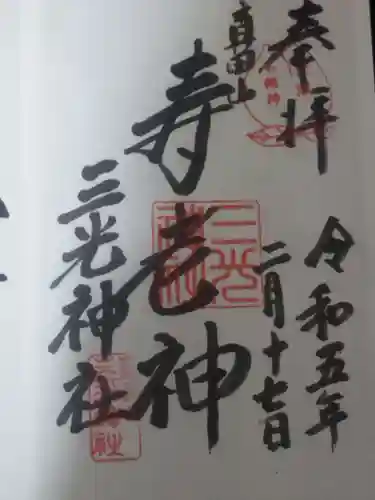 奉拝
令和五年
二月十七日
真田山
寿老神
三光神社
三光
神社